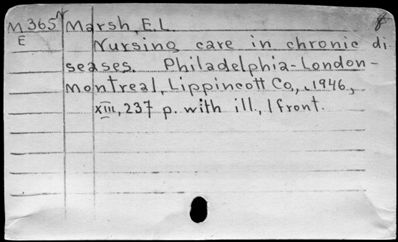 M365 Marsh, E.L.
E
Nursing care in chronic di
seases. Philadelphia-London-
Montreal, Lippincott Co., 1946,
xiii, 237 p. with ill., 1 front.